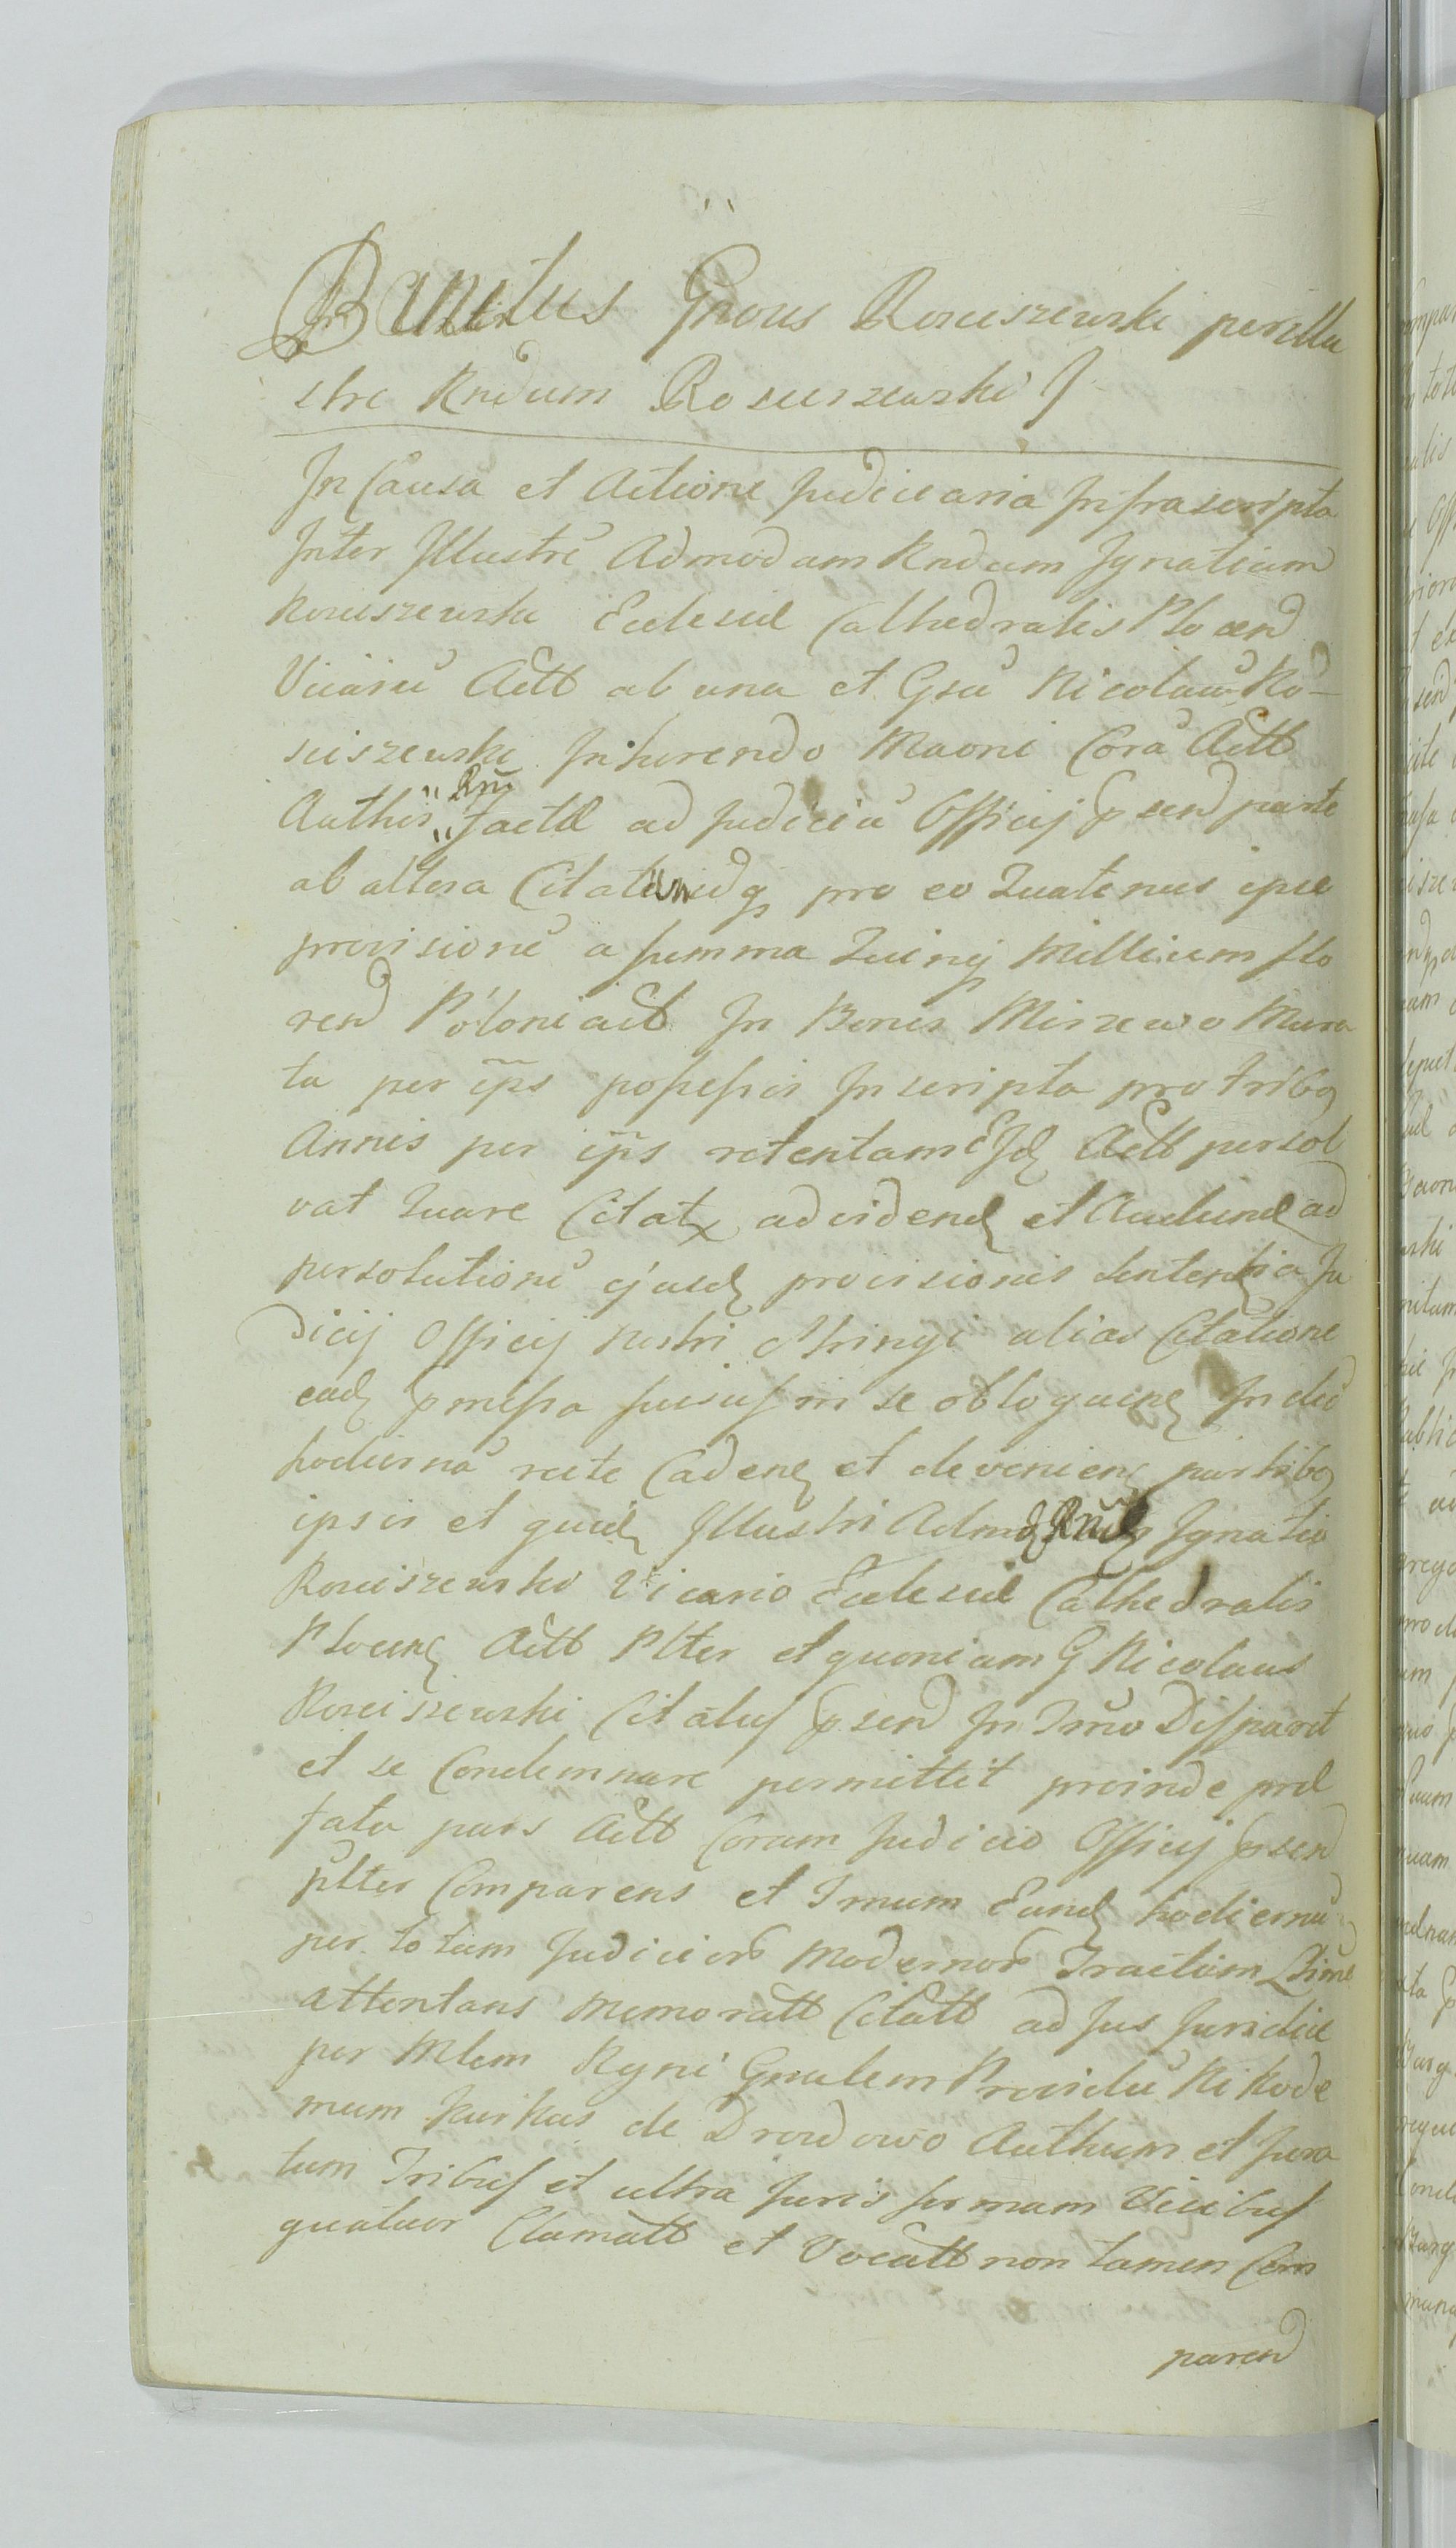 Banitus Gnous Rosciszewski perillu
stre Rndum Rosciszewski
In Causa et Actione Judiciaria Infrascripta
Inter Illustrē Admodum Rndum Ignatium
Rosciszewski Ecclesiæ Cathedralis Plocend
Vicariū Actt ab una et Gsū Nicolaū Ro-
sciszewski Inhærendo Maoni Corā Actt
Authis Rni factæ ad Judiciū Officij psend parte
ab altera Citatum idq pro eo Quatenus ipse
provisionē a summa Quinq Millium flo
rend Poloniactt In Bonis Miszewo Mura
ta per ips possessis Inscripta pro tribq
Annis per ips retentam Actt persol
vat Quare Citat ad vidend et Audiend ad
persolutionē ejusd provisionis Sententia Ju
dicij Officij nostri Stringi alias Citatione
ead pmissa suis in se obloquen In diē
hodiernā recte Caden et devenien partibq
ipsis et quid Illustri Admd Rnd Ignatio
Rosciszewski Vicario Ecclesiæ Cathedralis
Plocens Actt Plter et quoniam G Nicolaus
Rosciszewski Citatus psend In Tmō Disparet
et se Condemnare permittit proinde præ
fata pars Actt Coram Judicio Officij psend
plter Comparens et Tmum Eund hodiernū
per totum Judicior Modernor Tractum
attentans memoratt Citatt ad Jus Juridice
per Mlem Rgni Gnalem Providū Nikode
mum Kurkus de Drozdowo Authum et Jura
tum Tribus et ultra Juris formam Vicibus
quatuor Clamatt et Vocatt non tamen Com
parend